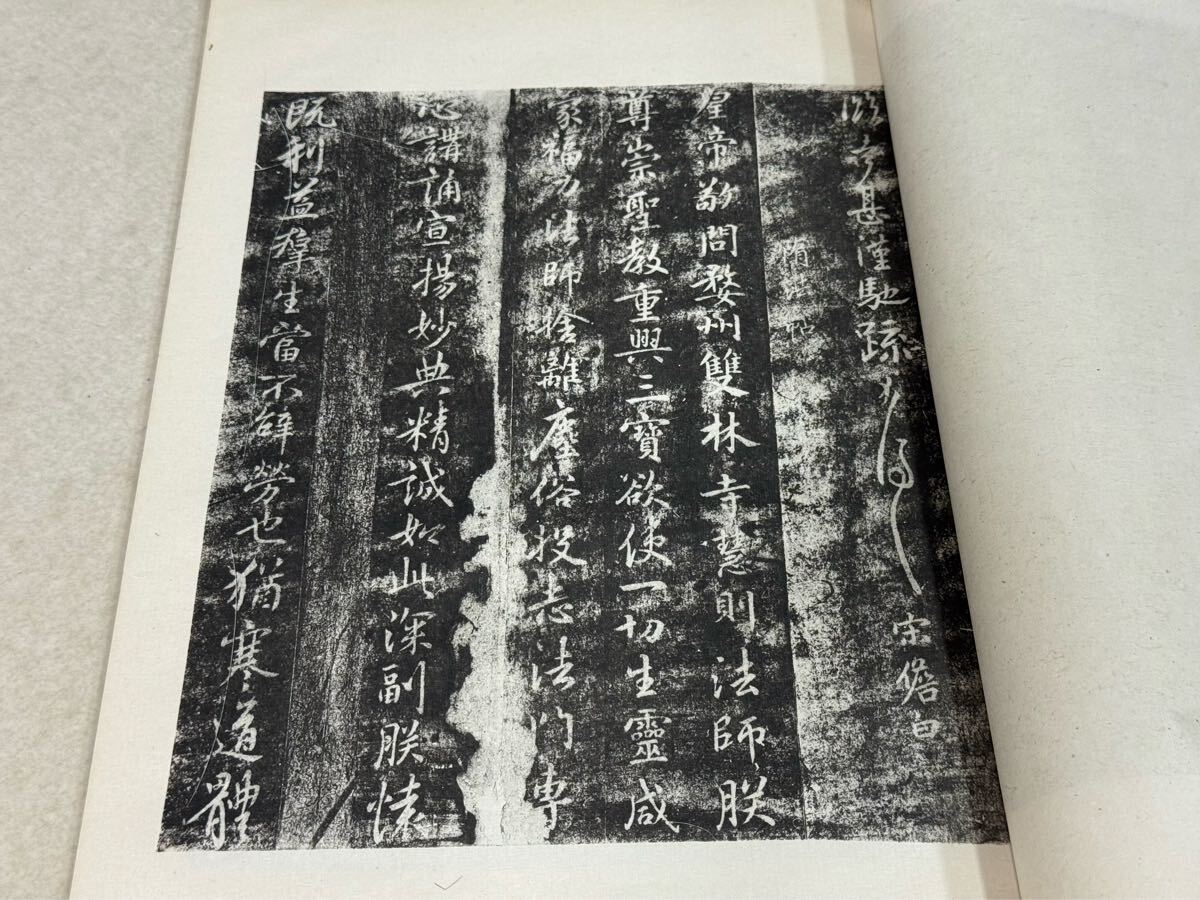 甚謹馳疏
宋儋白
隋法帖
皇帝敬問婺州雙林寺慧則法師朕
尊崇聖教重興三寶欲使一切生靈咸
蒙福力法師捨離塵俗投志法門專
心講誦宣揚妙典精誠如此深副朕懷
既利益羣生當不辭勞也猶寒道體